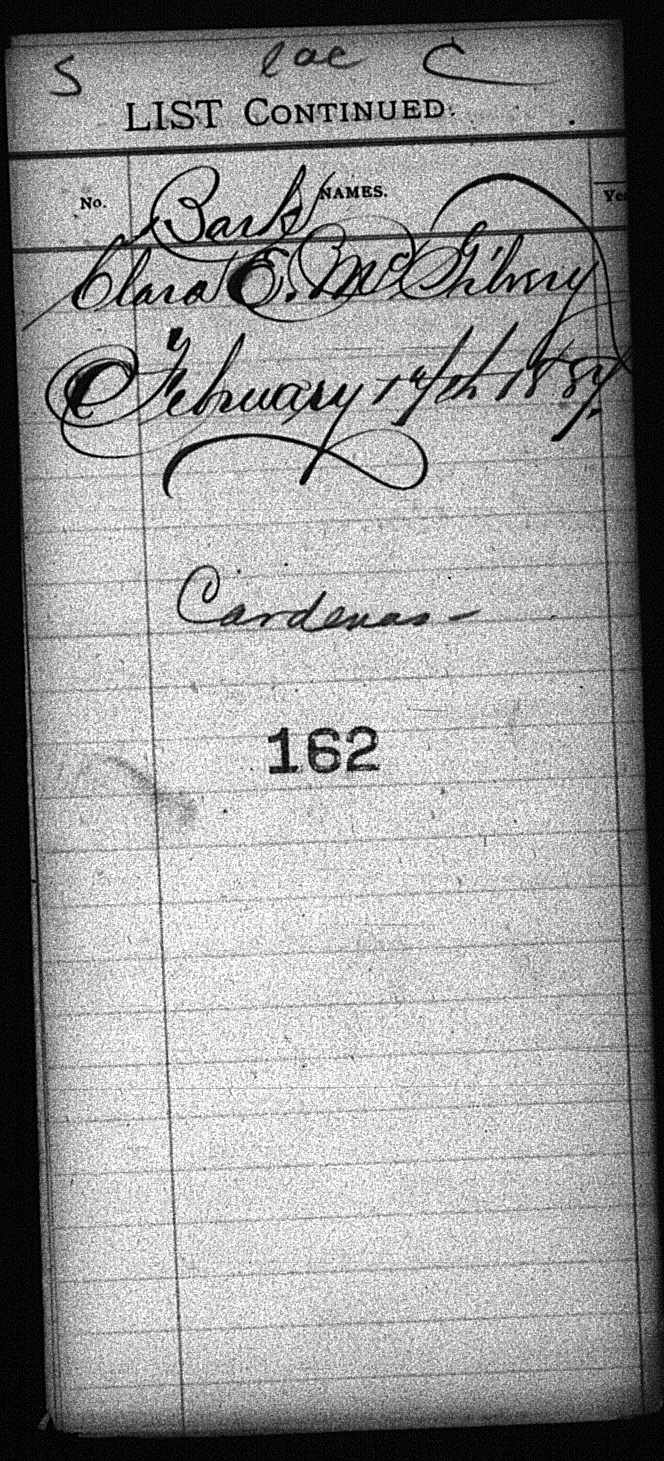 S lac C
LIST CONTINUED.
No. NAMES.
Bark
Clara E. McGilvery
February 17th 1887.
Cardenas -
162